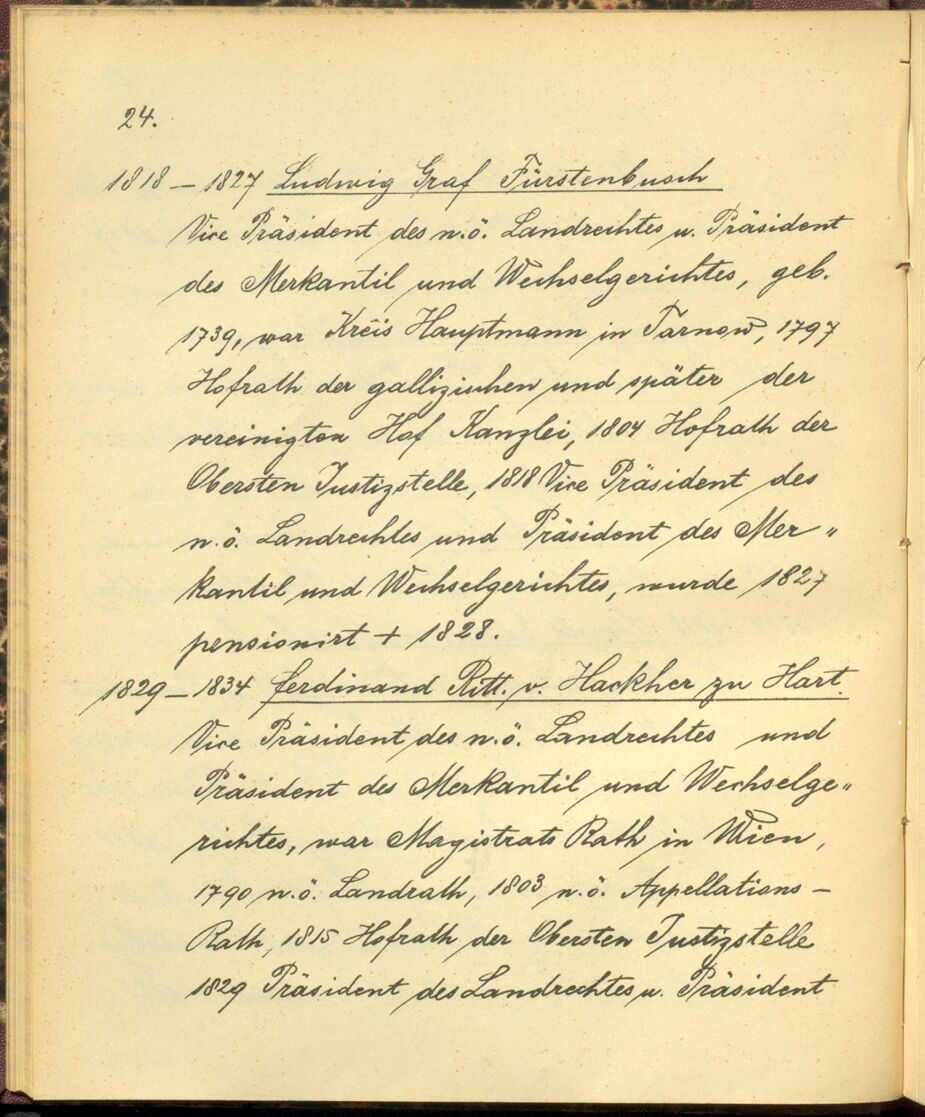 24.
1818 – 1827 Ludwig Graf Fürstenbusch
Vice Präsident des n.ö. Landrechtes u. Präsident
des Merkantil und Wechselgerichtes, geb.
1739, war Kreis Hauptmann in Tarnow, 1797
Hofrath der gallizischen und später der
vereinigten Hof Kanzlei, 1804 Hofrath der
Obersten Justizstelle, 1818 Vice Präsident des
n.ö. Landrechtes und Präsident des Mer „
kantil und Wechselgerichtes, wurde 1827
pensionirt + 1828.
1829 – 1834 Ferdinand Ritt. v. Hackher zu Hart.
Vice Präsident des n.ö. Landrechtes und
Präsident des Merkantil und Wechselge„
richtes, war Magistrats Rath in Wien,
1790 n.ö. Landrath, 1803 n.ö. Appellations –
Rath, 1815 Hofrath der Obersten Justizstelle
1829 Präsident des Landrechtes u. Präsident